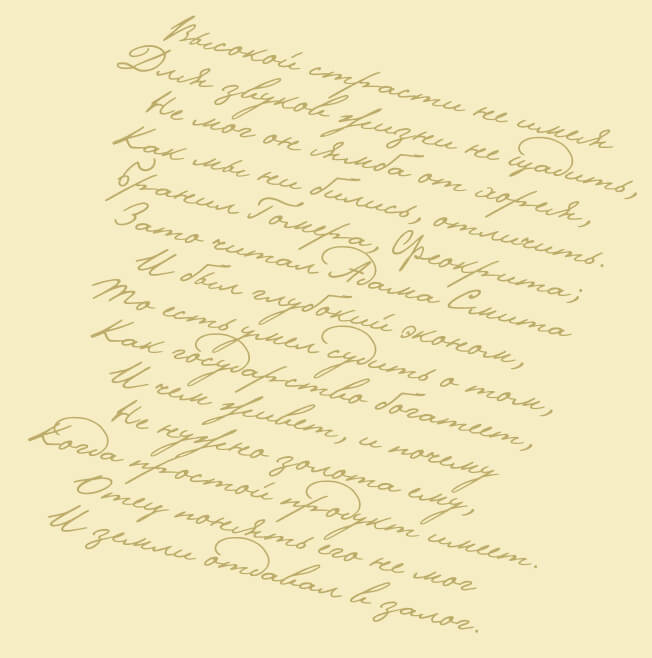 Высокой страсти не имея
Для звуков жизни не щадить,
Не мог он ямба от хорея,
Как мы ни бились, отличить.
Бранил Гомера, Феокрита;
Зато читал Адама Смита
И был глубокий эконом,
То есть умел судить о том,
Как государство богатеет,
И чем живет, и почему
Не нужно золота ему,
Когда простой продукт имеет.
Отец понять его не мог
И земли отдавал в залог.